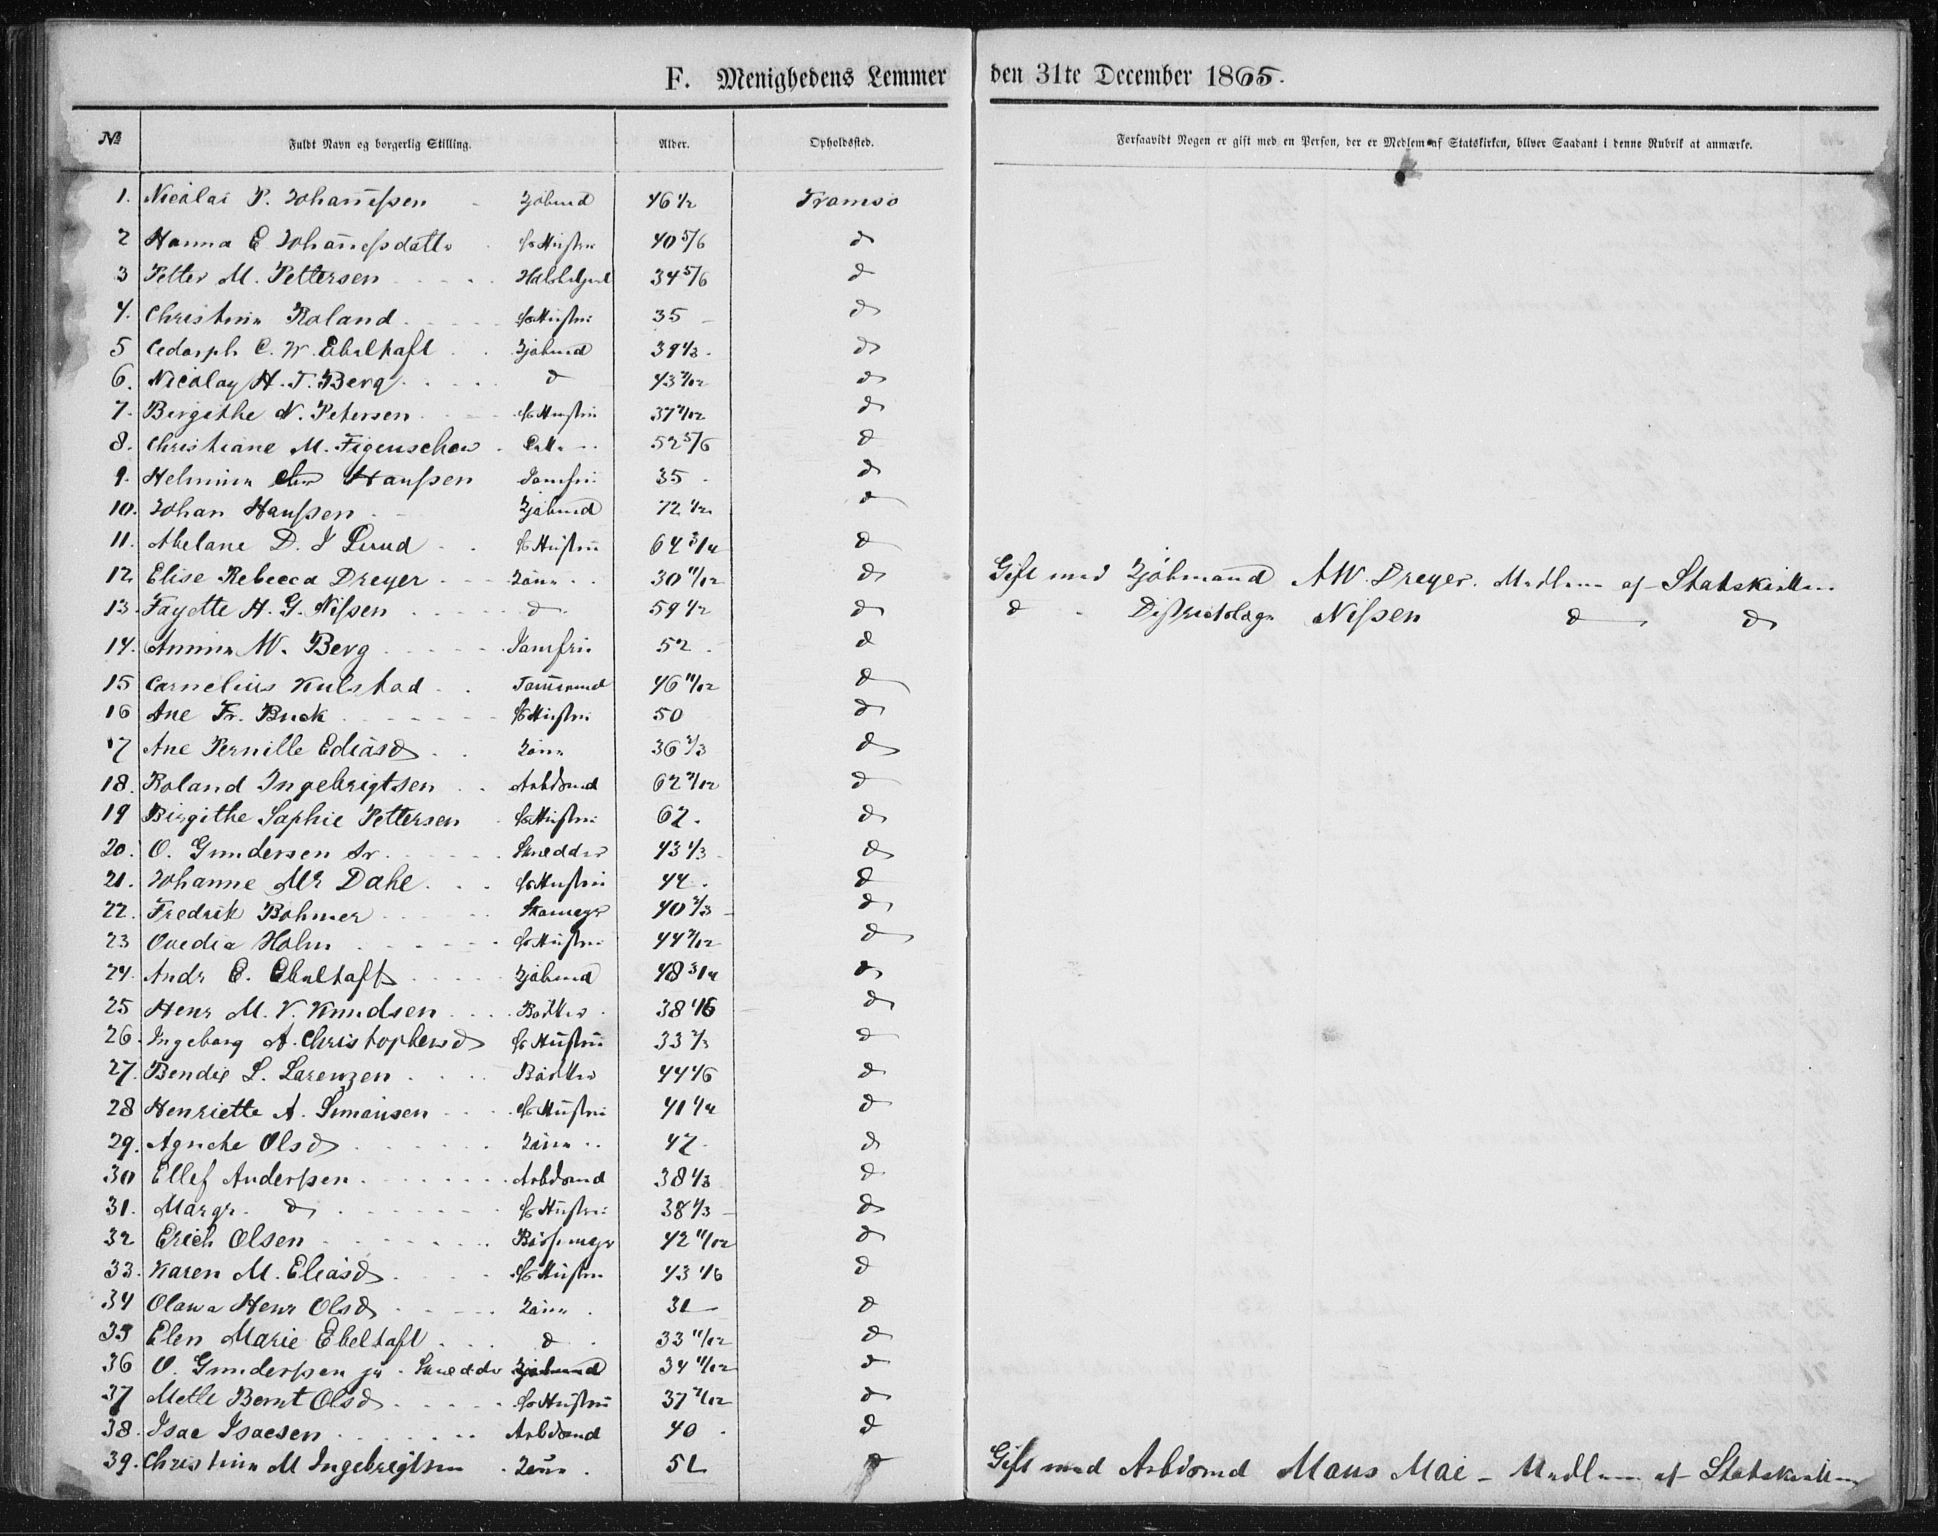 F. Menighedens Lemmer den 31te December 1865.
№ Fuldt Navn og borgerlig Stilling. Alder. Opholdssted. Forsaavidt Nogen er gift med en Person, der er Medlem af Statskirken, bliver Saadant i denne Rubrik at anmærke.
1. Nicolai P. Johannessen 46 1/2 Tromsø
2 Hanna E Johannesdatter Hustru 40 5/6 d
3 Petter M. Pettersen 34 5/6 d
4. Christina Roland Hustru 35 d
5 C. W. Ebeltoft 39 1/2 d
6. Nicolay H. T. Berg d 43 d
7. Birgithe N. Petersen Hustru 37 d
8. Christiane M. Figenschow 52 5/6 d
9. Hansen Jomfru 35 d
10. Johan Hanssen 72 1/2 d
11. D. Lund Hustru 64 3/4 d
12 Elise Rebecca Dreyer 30 11/12 d Gift med A W. Dreyer. Medlem af Statskirken
13. Fayette H. G. Nissen d 59 1/2 d d Nissen d d
14. M. Berg Jomfru 52 d
15 Cornelius Kulstad 46 11/12 d
16 Ane Fr. Buck Hustru 50 d
17 Ane Pernille 36 2/3 d
18. Roland Ingebrigtsen Arbdmd 62 d
19 Birgithe Sophie Pettersen Hustru 62. d
20. O. Gundersen Sr. Skrædder 43 1/3 d
21. Johanne Dahl Hustru 44. d
22. Fredrik Bohmer 40 2/3 d
23 Ovedia Holm Hustru 44 d
24. Andr E. Ebeltoft 48 3/4 d
25 Henr M. V. Knudsen Bødker 38 1/6 d
26. Ingeborg A. Christophersd Hustru 33 d
27. Bendix L. Lorenzen Bødker 44 1/6 d
28 Henriette A. Simonsen Hustru 41 1/4 d
29. Olsd 42 d
30 Ellef Anderssen Arbdmd 38 1/3 d
31. Margr. d Hustru 38 1/3 d
32 Erich Olsen 42 11/12 d
33. Karen M. Eliasd Hustru 43 1/6 d
34 Olava Henr Olsd 31 d
35 Elen Marie Ebeltoft d 33 11/12 d
36 O. Gunderssen jr Skrædder 34 11/12 d
37 Mette Bernt Olsd Hustru 37 d
38. Isac Isacsen Arbdmd 40 d
39. Christina M Ingebrigtsen 51 d Gift med Arbdmd Mons Moe Medlem af Statskirken